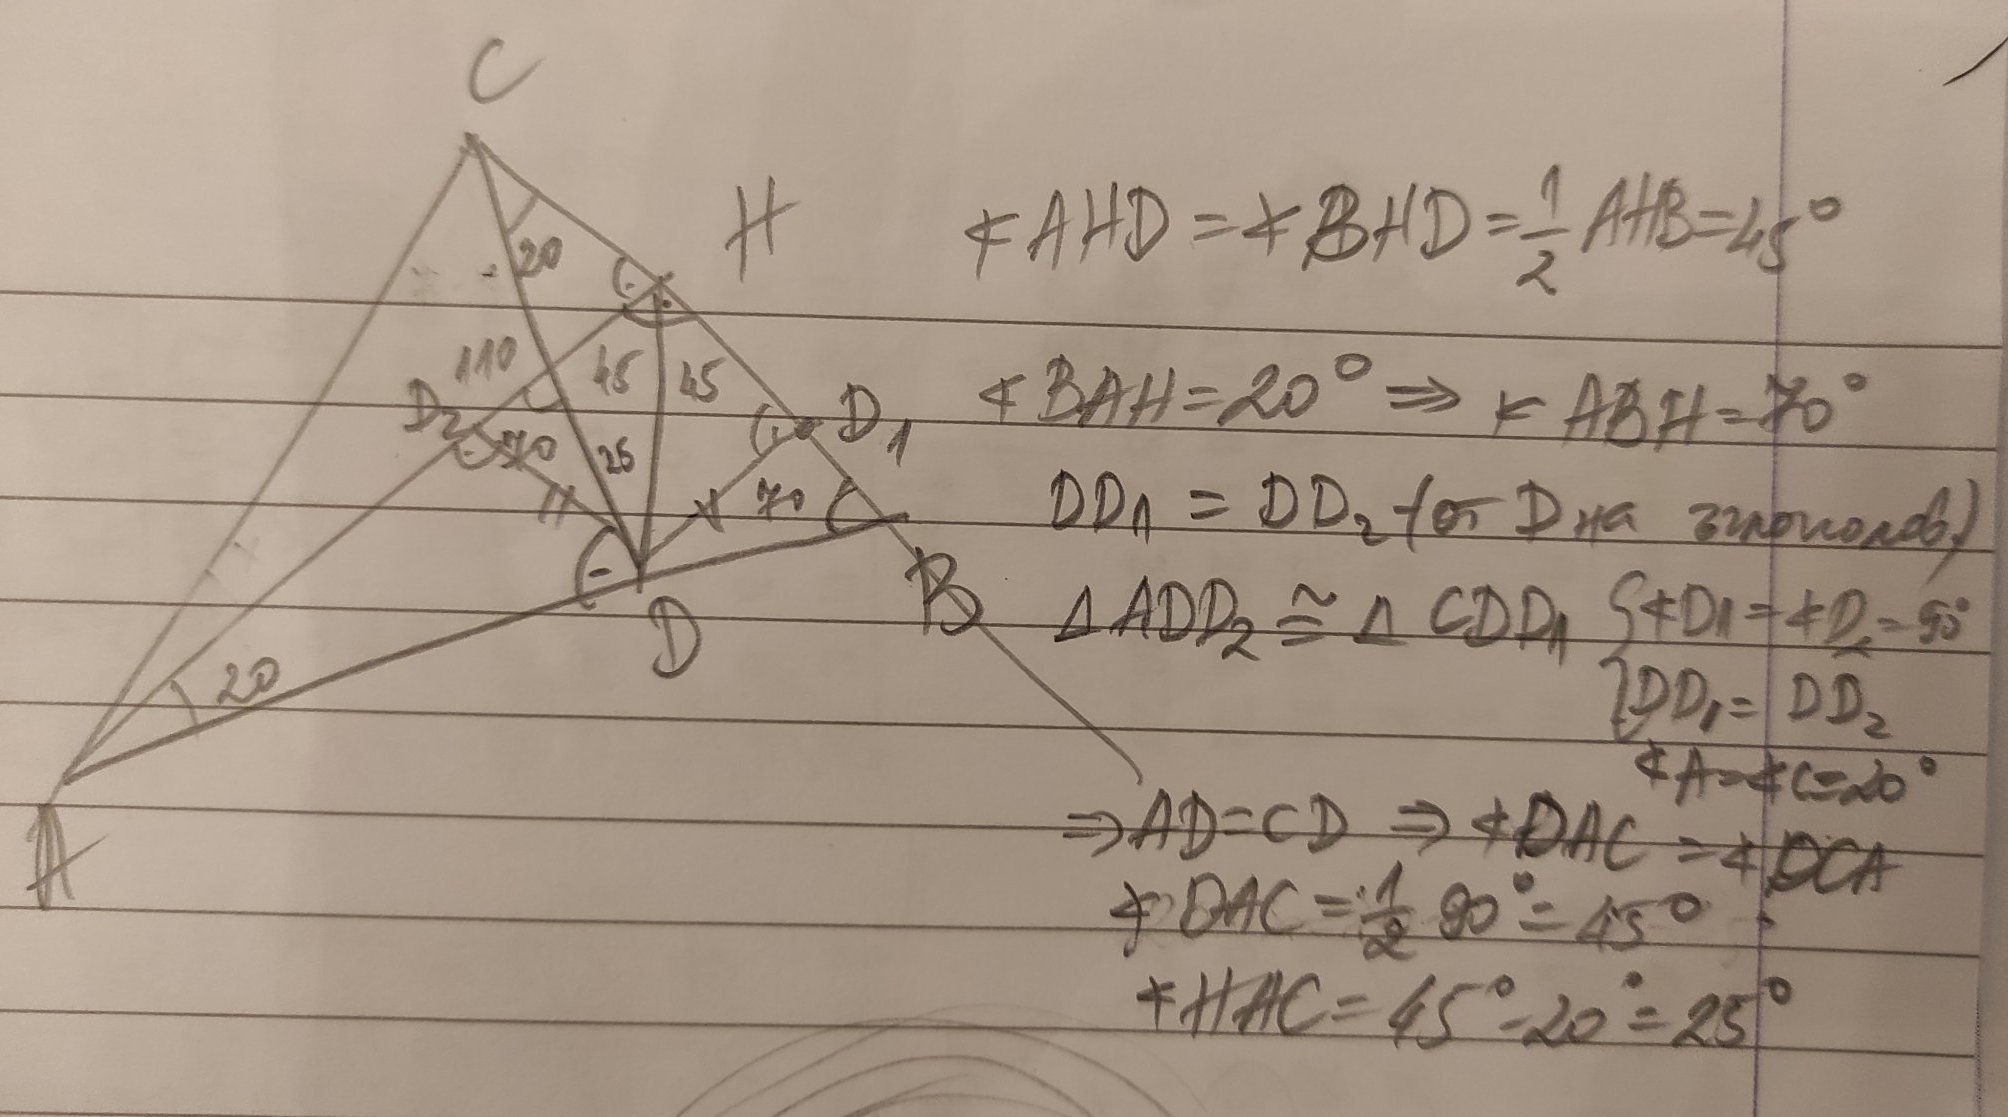 C
H
20
110
45
45
D₂
70
25
D₁
70
B
D
20
A
∢AHD = ∢BHD = 1/2 AHB = 45°
∢BAH = 20° ⇒ ∢ABH = 70°
DD₁ = DD₂ - (от D на ъглополов.)
△ADD₂ ≅ △CDD₁ { ∢D₁ = ∢D₂ = 90°
DD₁ = DD₂
∢A = ∢C = 20°
⇒ AD = CD ⇒ ∢DAC = ∢DCA
∢DAC = 1/2 90° = 45°
∢HAC = 45° - 20° = 25°